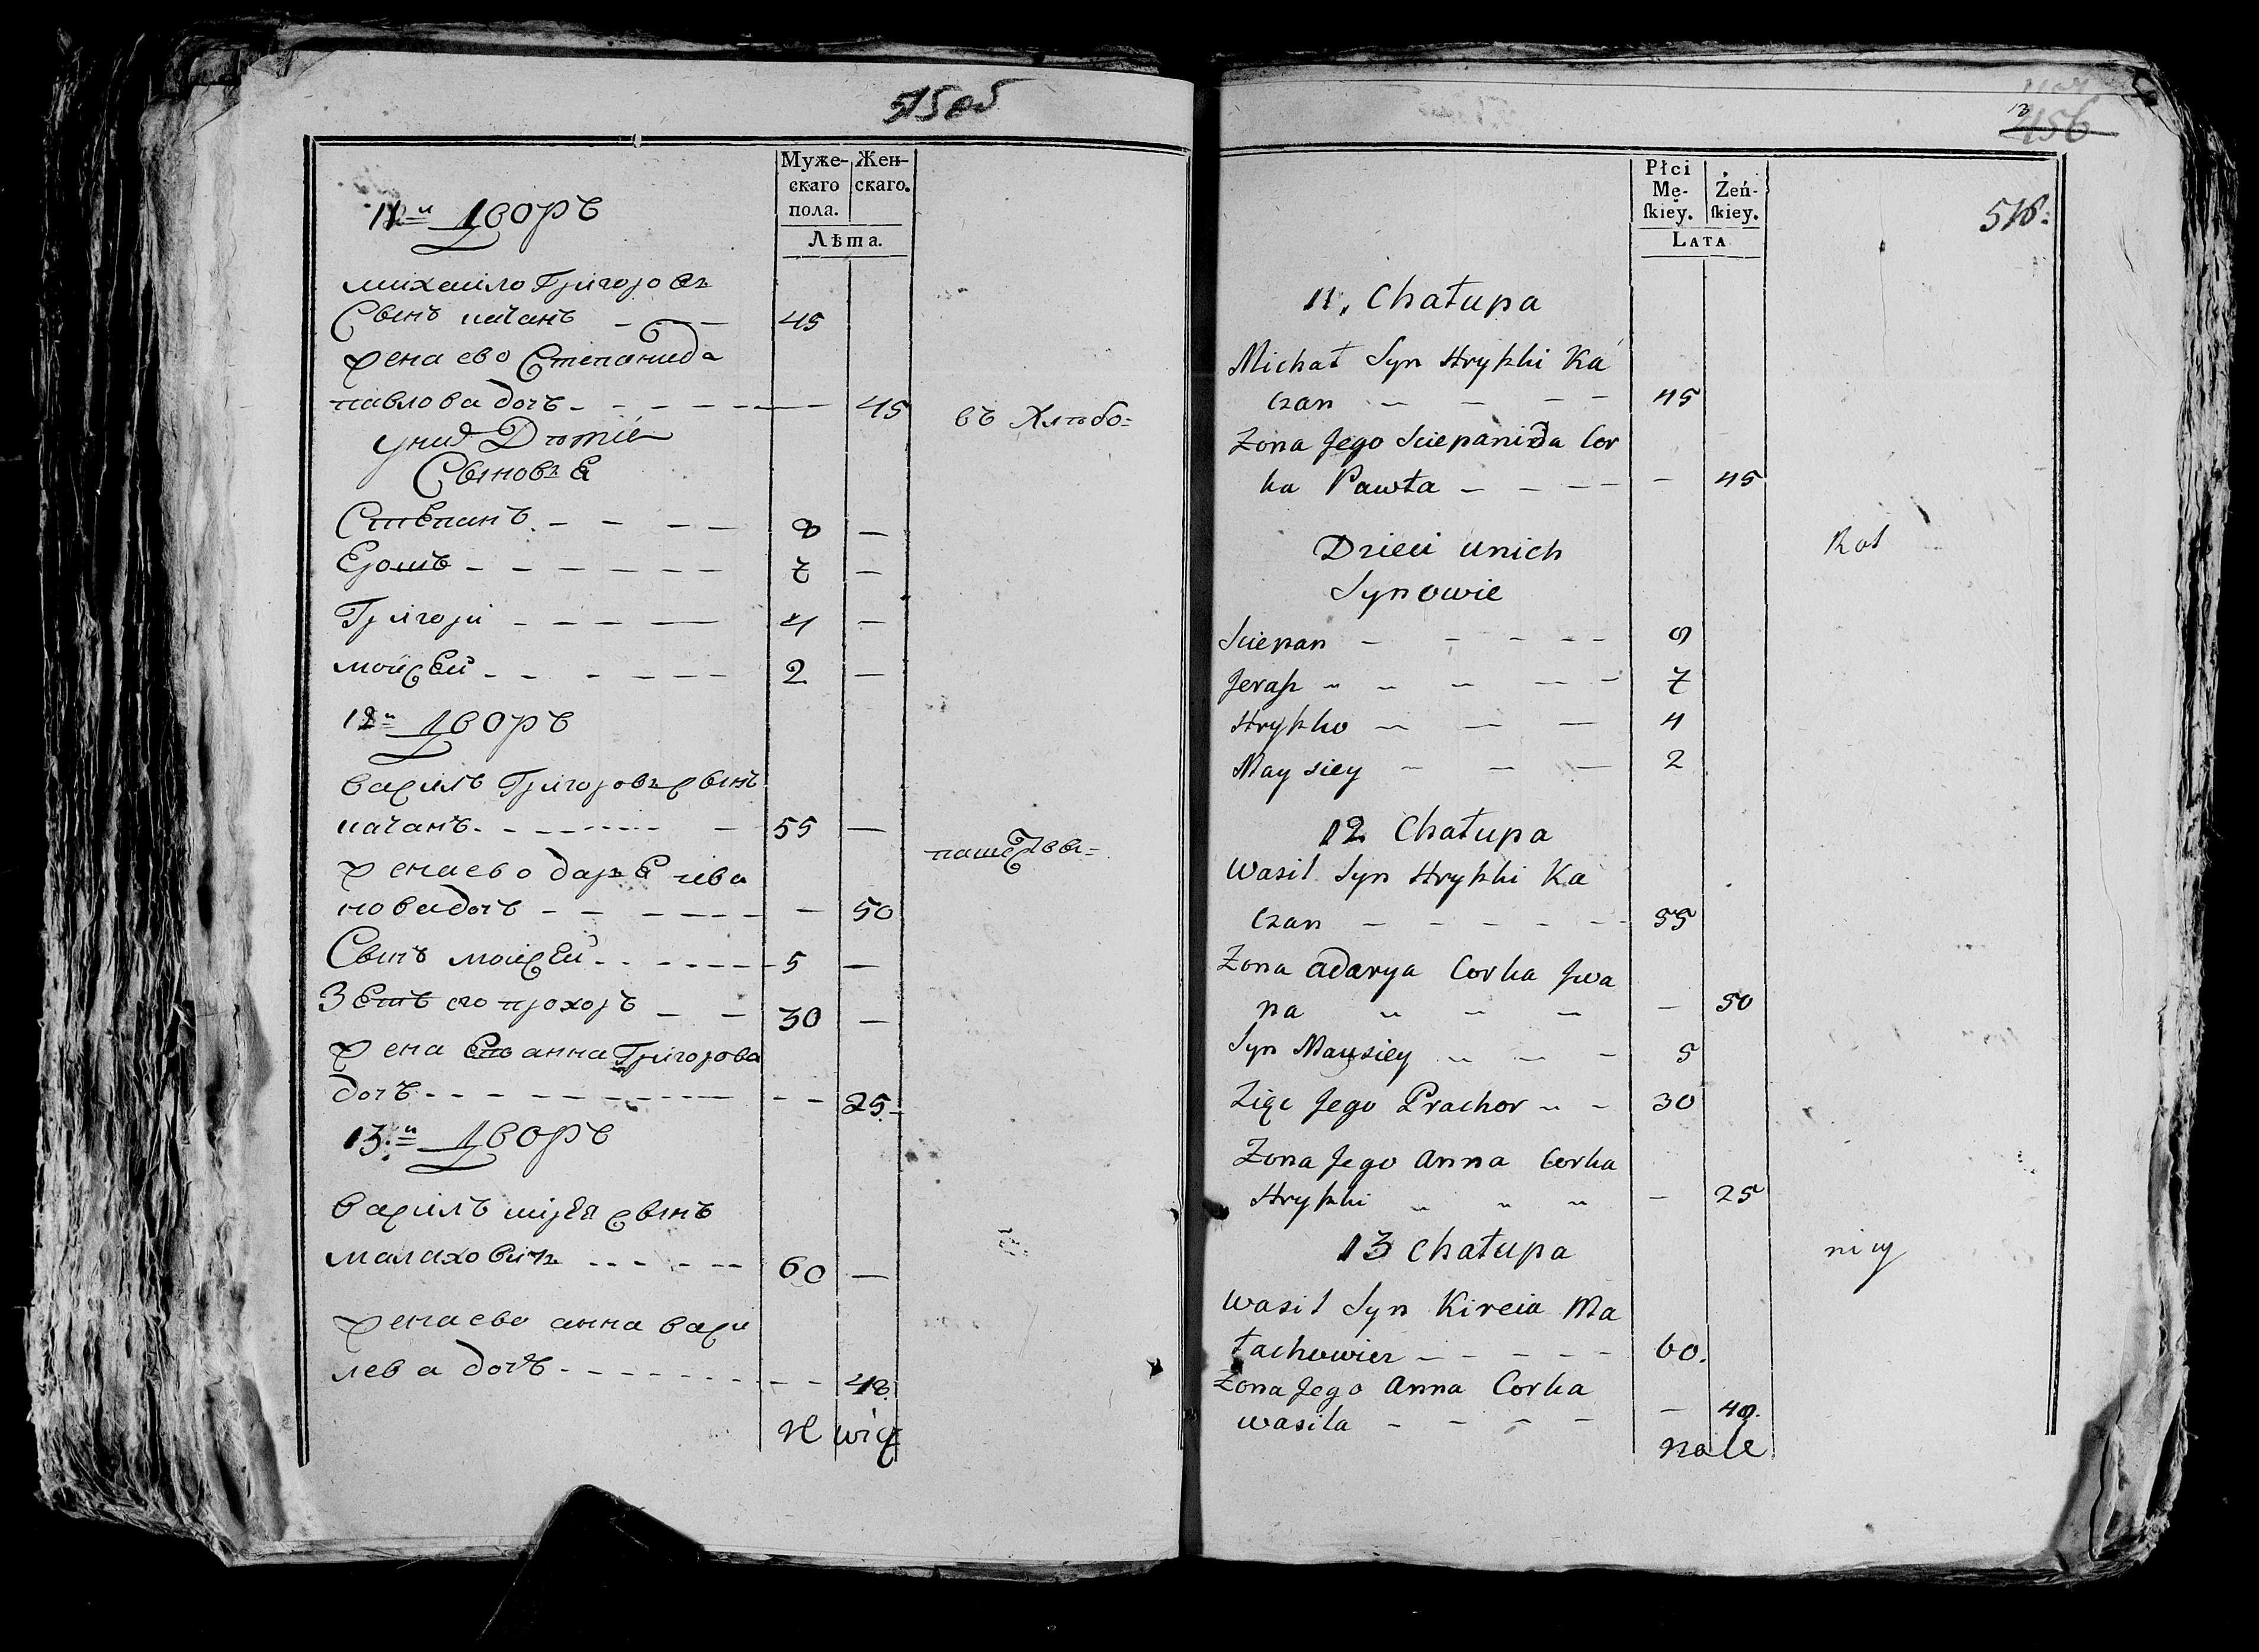 515 об
Муже- Жен-
скаго скаго.
пола.
Лѣта.
11й Дворъ
михаило Григоровъ
Сынъ качанъ - - - 45
жена ево Степанида
павлова дочъ - - - - - 45
въ Хлѣбо=
у них Дѣтіе
Сыновъе
Степанъ - - - - 8 —
Еромъ - - - - - - 7 —
Григори - - - - - 4 —
моисеи - - - - - - 2 —
12й Дворъ
василъ Григоровъ сынъ
качанъ - - - - - - 55 —
пашеством=
жена ево даръе ива
нова дочъ - - - - - - — 50
Сынъ моисеи - - - - - 5 —
Зеть его прохоръ - - 30 —
жена его анна Григорова
дочъ - - - - - - - - - 25
13й Дворъ
василъ кирея сынъ
малаховичъ - - - - - 60 —
жена ево анна васи
лева дочъ - - - - - - - - 48
456
516.
Płci
Mę- Żeń-
ſkiey. ſkiey.
LATA
11. Chałupa
Michał Syn Hryszki Ka
czan - - - - 45
Zona Jego Sciepanida Cor
ka Pawła - - - - — 45
Dzieci unich
Rol
Synowie
Sciepan - - - - - 8
Jerasz - - - - - 7
Hryszko - - - 4
Maysiey - - - 2
12 Chałupa
Wasil Syn Hryszki Ka
czan - - - - - - 55
Zona adarya Corka Jwa
na - - - — 50
Syn Mausiey - - - 5
Zięc Jego Prachor - - 30
Zona Jego Anna Corka
Hryszki - - - — 25
13 Chałupa
nicy
Wasil Syn Kireia Ma
łachowicz - - - - - 60.
Zona Jego Anna Corka
Wasila - - - - — 48.